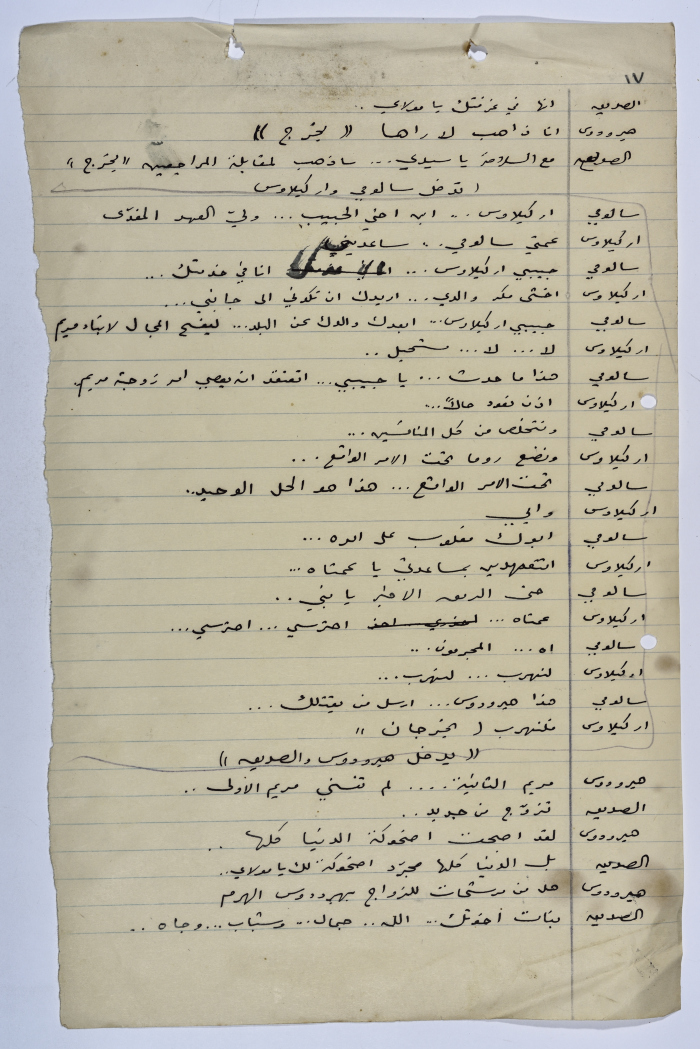 ١٧
الصديق انها في غرفتك يا مولاي ..
هيرودوس انا ذاهب لا راها (( يخرج ))
الصديق مع السلامة يا سيدي ... ساذهب لمقابلة المراجعين "يخرج"
( تدخل سالومي واركيلاوس
سالومي اركيلاوس ... ابن اخي الحبيب ... ولي العهد المفدّى
اركيلاوس عمتي سالومي .. ساعديني
سالومي حبيبي اركيلاوس ... انا في خدمتك ...
اركيلاوس اخشى مكر والدي ... اريدك ان تكوني الى جانبي ...
سالومي حبيبي اركيلاوس ... ابعدك والدك عن البلد ... ليفسح المجال لابناء مريم
اركيلاوس لا ... لا ... مستحيل ..
سالومي هذا ما حدث ... يا حبيبي ... اتعتقد انه يعصي امر زوجته مريم .
اركيلاوس اذن نعود حالاً ...
سالومي ونتخلص من كل المنافسين ...
اركيلاوس ونضع روما تحت الامر الواقع ...
سالومي تحت الامر الواقع ... هذا هو الحل الوحيد ..
اركيلاوس وابي
سالومي ابوك مغلوب على امره ...
اركيلاوس اتتعهدين بمساعدتي يا عمتاه ...
سالومي حتى الرمق الاخير يا بني ..
اركيلاوس عمتاه ... احترسي ... احترسي ...
سالومي اه ... المجرمون ...
اركيلاوس لنهرب ... لنهرب ...
سالومي هذا هيرودوس ... ارسل من يقتلك ...
اركيلاوس فلنهرب ( يخرجان "
(( يدخل هيرودوس والصديق ))
هيرودوس مريم الثانية .... لم تنسني مريم الاولى ..
الصديق تزوّج من جديد ..
هيرودوس لقد اصبحت اضحوكة الدنيا كلها ..
الصديق بل الدنيا كلها مجرّد اضحوكة لك يا مولاي ..
هيرودوس هل من مرشحات للزواج بهيرودوس الهرم
الصديق بنات اخوتك ... الله .. جمال ... وشباب ... وجاه ..